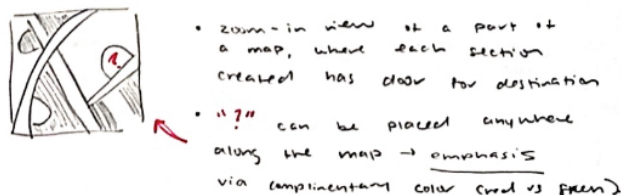 ?
• zoom-in view of a part of
a map, where each section
created has door for destination
• "?" can be placed anywhere
along the map → emphasis
via complimentary color (red vs green)